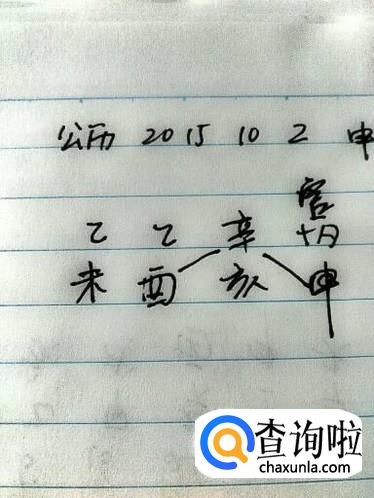 公历 2015 10 2 申
乙 乙 辛
未 酉 亥 申
查询啦
chaxunla.com